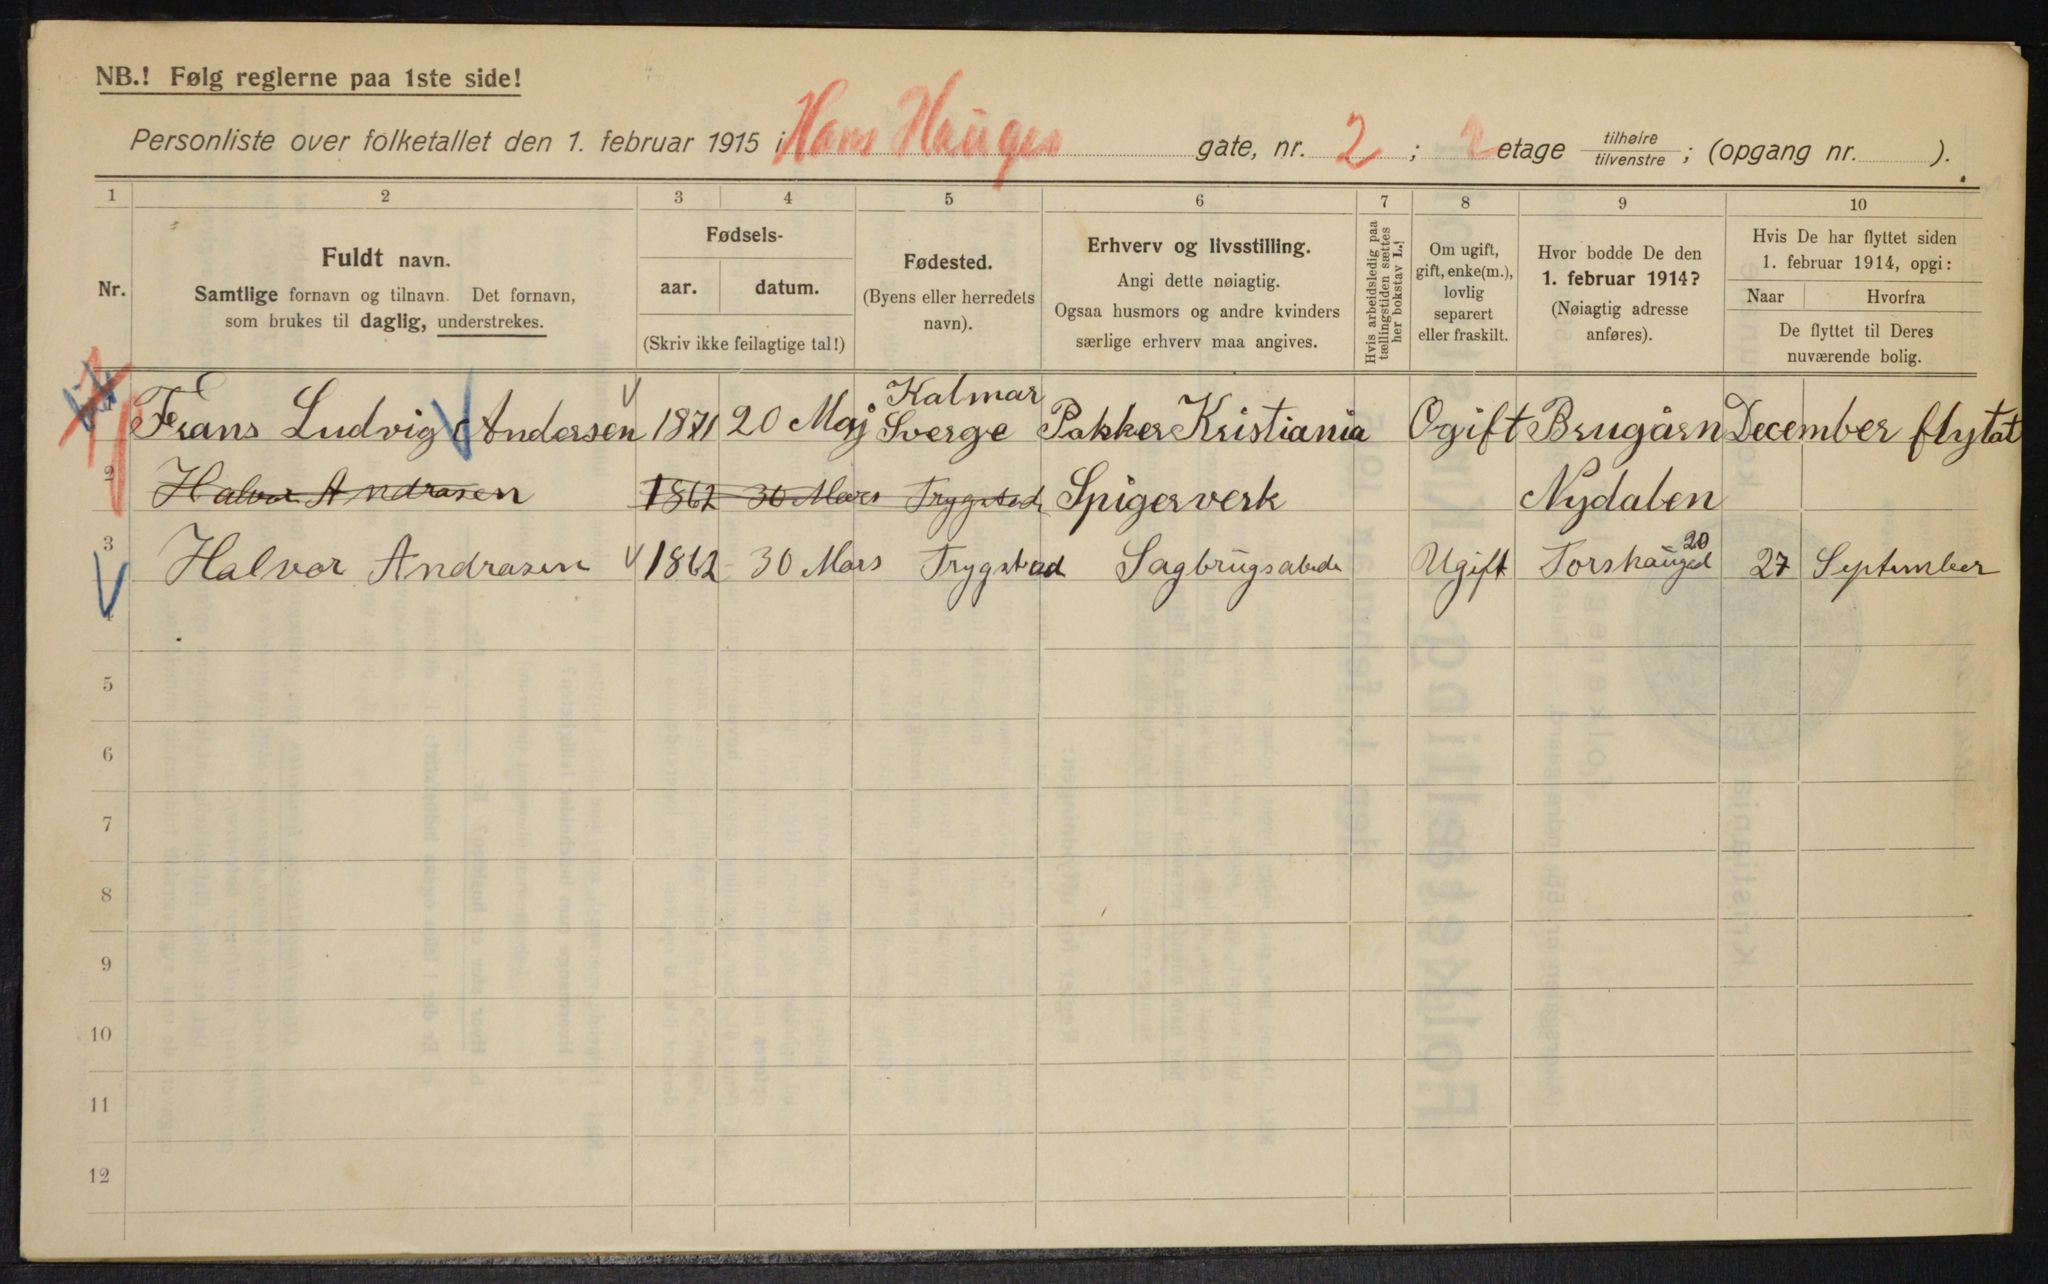 NB.! Følg reglerne paa 1ste side!
Personliste over folketallet den 1. februar 1915 i Hans Hauges gate, nr. 2 ; 2 etage tilhøire tilvenstre ; (opgang nr. ).
1 2 3 4 5 6 7 8 9 10
Nr.
Fuldt navn.
Samtlige fornavn og tilnavn. Det fornavn,
som brukes til daglig, understrekes.
Fødsels-
aar. datum.
(Skriv ikke feilagtige tal!)
Fødested.
(Byens eller herredets
navn).
Erhverv og livsstilling.
Angi dette nøiagtig.
Ogsaa husmors og andre kvinders
særlige erhverv maa angives.
Hvis arbeidsledig paa
tællingstiden sættes
her bokstav L.
Om ugift,
gift, enke(m.),
lovlig
separert
eller fraskilt.
Hvor bodde De den
1. februar 1914?
(Nøiagtig adresse
anføres).
Hvis De har flyttet siden
1. februar 1914, opgi:
Naar Hvorfra
De flyttet til Deres
nuværende bolig.
Kalmar
1 Frans Ludvig Andersen 1871 20 Maj Sverge Pakker Kristiania Ogift Brugårn December flytat
2 Halvor Andrasen 1862 30 Mars Trygstad Spigerverk Nydalen
3 Halvor Andrasen 1862 30 Mars Trygstad Sagbrugsabede Ugift Torshauged 20 27 September
4
5
6
7
8
9
10
11
12